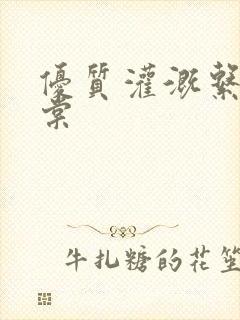 優質灌溉繫
棠
牛扎糖的花笙